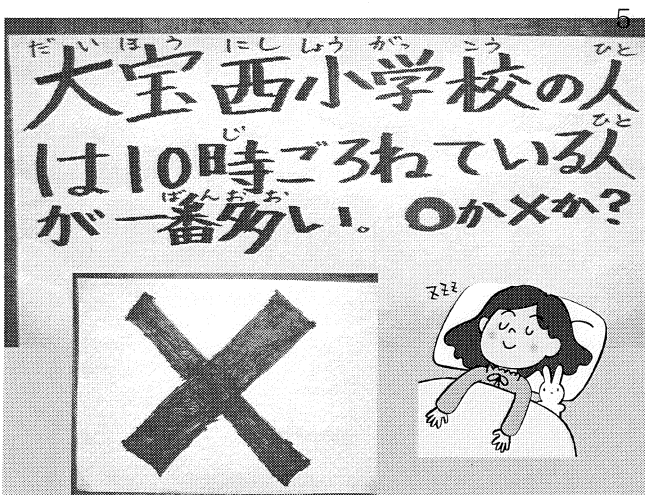 5
大宝西小学校の人
は10時ごろねている人
が一番多い。○か×か?
だいほうにししょうがっこうひと
じひと
ばんおお
zzz